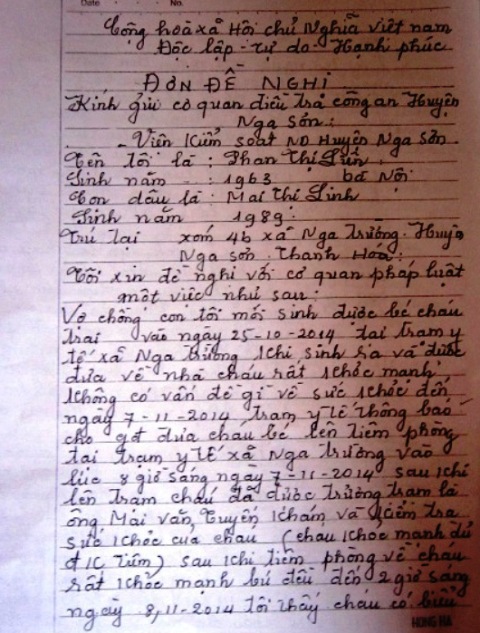 Date No.
Cộng hoà xã Hội chủ Nghĩa việt nam
Độc lập - tự do - Hạnh phúc
ĐƠN ĐỀ NGHỊ
Kính gửi cơ quan điều tra công an Huyện
Nga Sơn:
- Viện Kiểm soát ND Huyện Nga Sơn
Tên tôi là : Phan Thị
Sinh năm : 1963 bà Nội
Con dâu là : Mai Thị Linh
Sinh năm 1989:
Trú tại xóm 4b xã Nga Trường. Huyện
Nga sơn. Thanh Hóa:
Tôi xin đề nghị với cơ quan pháp luật
một việc như sau:
Vợ chồng con tôi mới sinh được bé cháu
trai vào ngày 25-10-2014 tại trạm y
tế xã Nga Trường khi sinh ra và được
đưa về nhà cháu rất khỏe mạnh
không có vấn đề gì về sức khỏe đến
ngày 7-11-2014, trạm y tế thông báo
cho gđ đưa cháu bé lên tiêm phòng
tại trạm y tế xã Nga Trường vào
lúc 8 giờ sáng ngày 7-11-2014 sau khi
lên trạm cháu đã được trưởng trạm là
ông Mai văn Tuyến khám và kiểm tra
sức khỏe của cháu (cháu khỏe mạnh đủ
đk tiêm) sau khi tiêm phòng về cháu
rất khỏe mạnh bú đều đến 2 giờ sáng
ngày 8, 11-2014 tôi thấy cháu có biểu
HONG HA